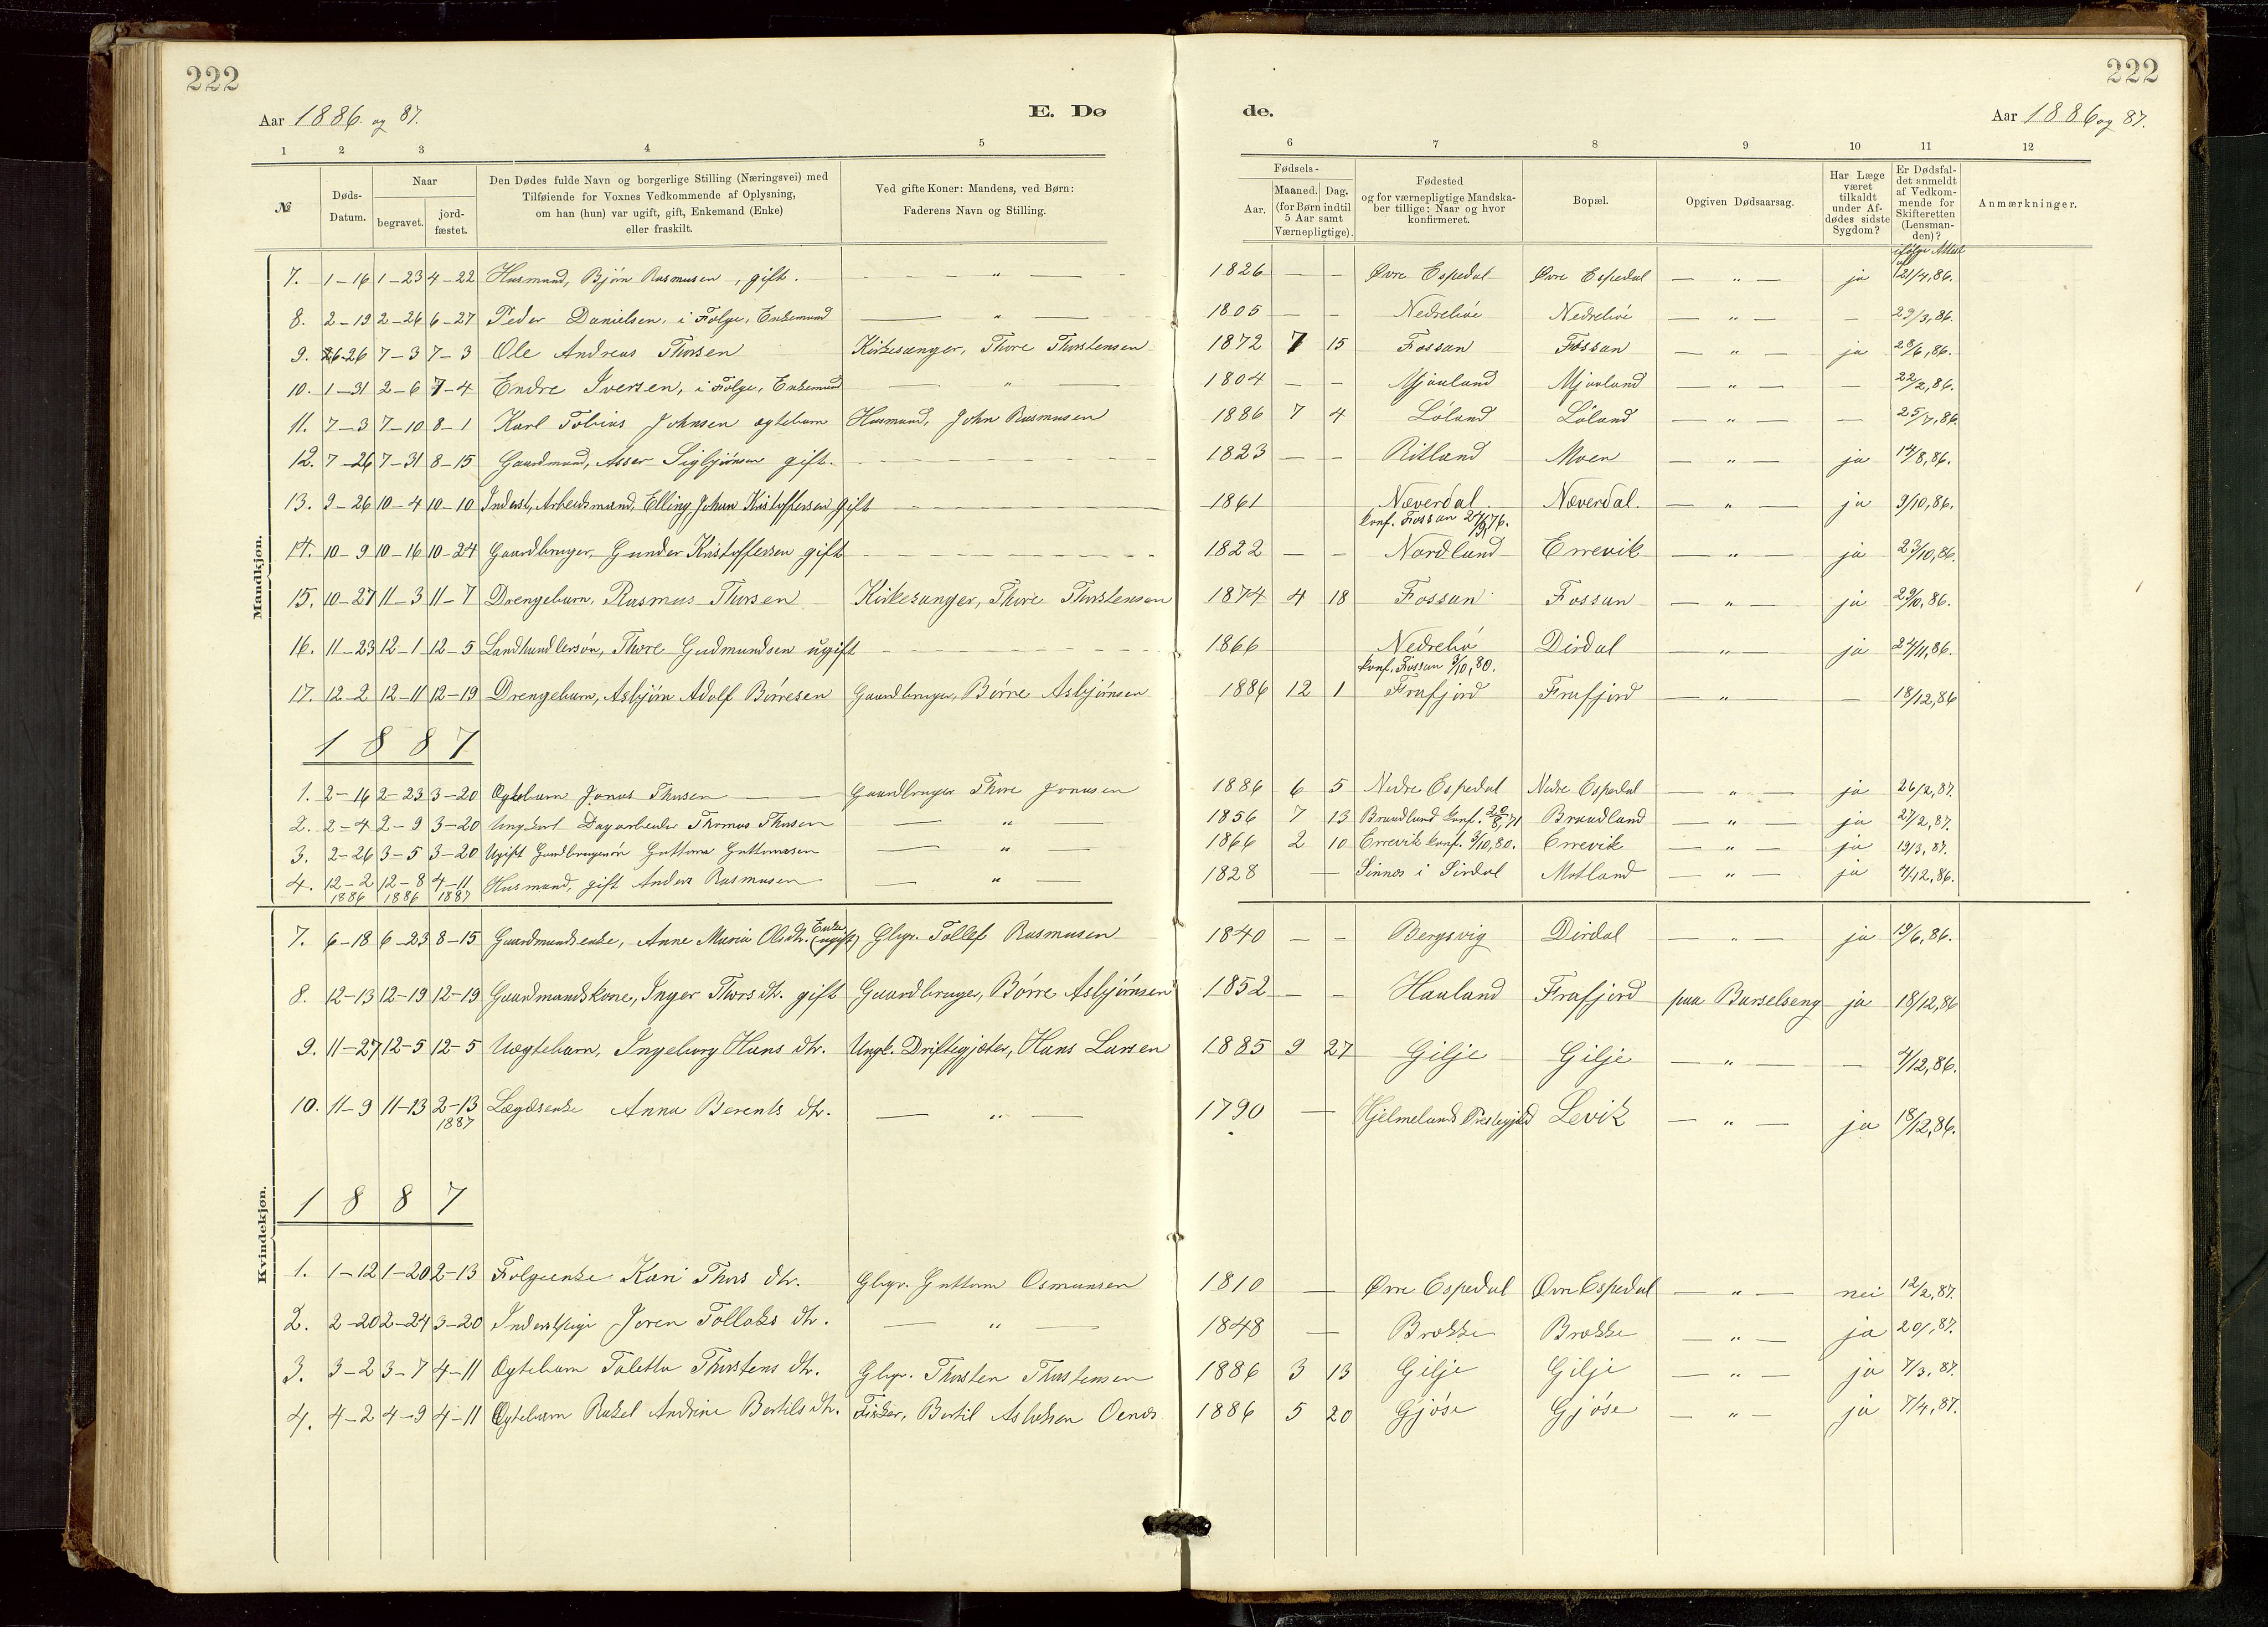 222
Aar 1886. og 87.
E. Dø
1 2 3 4 5
№
Døds-Datum.
Naar
begravet. jord-fæstet.
Den Dødes fulde Navn og borgerlige Stilling (Næringsvei) med
Tilføiende for Voxnes Vedkommende af Oplysning,
om han (hun) var ugift, gift, Enkemand (Enke)
eller fraskilt.
Ved gifte Koner: Mandens, ved Børn:
Faderens Navn og Stilling.
222
de.
Aar 1886 og 87.
6 7 8 9 10 11 12
Fødsels-
Aar. Maaned. Dag.
(for Børn indtil
5 Aar samt
Værnepligtige).
Fødested
og for værnepligtige Mandska-
ber tillige: Naar og hvor
konfirmeret.
Bopæl.
Opgiven Dødsaarsag.
Har Læge
været
tilkaldt
under Af-
dødes sidste
Sygdom?
Er Dødsfal-
det anmeldt
af Vedkom-
mende for
Skifteretten
(Lensman-
den)?
Anmærkninger.
Mandkjøn.
ifølge Attest af
7. 1–16 1–23 4–22 Husmand, Bjørn Rasmusen –, gift. – " – 1826 – – Øvre Espedal Øvre Espedal – " – ja 21/4, 86.
8. 2–19 2–26 6–27 Peder Danielsen, i Følge, Enkemand – " – 1805 – – Nedrelivé Nedrelivé – " – – 29/3, 86.
9. 6-26 7–3 7–3 Ole Andreas Thorsen Kirkesanger, Thore Thorstensen 1872 7 15 Fossan Fossan – " – ja 28/6, 86.
10. 1–31 2–6 7–4 Endre Iversen, i Følge, Enkemand – " – 1804 – – Mjaaland Mjaaland – " – – 22/2, 86.
11. 7–3 7–10 8–1 Karl Tobias Johnsen ægtebarn Husmand, John Rasmusen 1886 7 4 Løland Løland – " – – 25/7, 86.
12. 7–26 7–31 8–15 Gaardmand, Asser Sigbjørnsen gift. – 1823 – – Ritland Moen – " – ja 14/8, 86.
13. 9–26 10–4 10–10 Inderst, Arbeidsmand, Elling Johan Kristoffersen gift – 1861 Næverdal. Næverdal. – " – ja 9/10, 86.
konf. Fossan
14. 10–9 10–16 10–24 Gaardbruger, Gunder Kristoffersen gift – 1822 – – Nordland Errevik – " – ja 23/10, 86.
15. 10–27 11–3 11–7 Drengebarn, Rasmus Thorsen Kirkesanger, Thore Thorstensen 1874 4 18 Fossan Fossan – " – ja 29/10, 86.
16. 11–23 12–1 12–5 Landhandlersøn, Thore Gudmundsen ugift – 1866 Nedrelivé Dirdal – " – ja 24/11, 86.
konf. Fossan 3/10, 80.
17. 12–2 12–11 12–19 Drengebarn, Asbjørn Adolf Børresen Gaardbruger, Børre Asbjørnsen 1886 12 1 Frafjord Frafjord – " – – 18/12, 86
1887
1. 2–16 2–23 3–20 Ægtebarn Jonas Thorsen – Gaardbruger Thore Jonasen 1886 6 5 Nedre Espedal Nedre Espedal – " – ja 26/2, 87.
2. 2–4 2–9 3–20 Ungkarl Dagarbeider Thomas Thorsen – " – 1856 7 13 Braadland konf. 20/8, 71 Braadland – " – ja 27/2, 87.
3. 2–26 3–5 3–20 Ugift Gaardbrugersøn Guttorm Guttormsen – " – 1866 2 10 Errevik konf. 3/10, 80. Errevik – " – ja 19/3, 87.
4. 12–2 12–8 4–11 Husmand, gift Anders Rasmusen – " – 1828 – Sinnes i Sirdal Motland – " – ja 4/12, 86.
1886 1886 1887
Kvindekjøn.
7. 6–18 6–23 8–15 Gaardmandsenke, Anne Maria Olsdtr. Enke (ugift) Gbgr. Tollef Rasmusen 1840 – – Bergsvig Dirdal – " – ja 19/6, 86.
8. 12–13 12–19 12–19 Gaardmandskone, Inger Thorsdtr. gift Gaardbruger, Børre Asbjørnsen 1852 – – Haaland Frafjord paa Barselseng ja 18/12, 86
9. 11–27 12–5 12–5 Uægtebarn, Ingeborg Hans dtr. Ungk. Driftegjæter, Hans Larsen 1885 9 27 Gilje Gilje – " – – 4/12, 86.
10. 11–9 11–13 2–13 Lægdsenke Anna Berents dtr. – " – 1790 – Hjelmelands Prestegjeld Levik – " – ja 18/12, 86.
1887
1887
1. 1–12 1–20 2–13 Følgeenke Kari Thors dtr. Gbgr. Guttorm Osmunsen 1810 – Øvre Espedal Øvre Espedal – " – nei 12/2, 87.
2. 2–20 2–24 3–20 Inderstpige Joren Tollaks dtr. – " – 1848 – Brekke Brekke – " – ja 20/, 87.
3. 3–2 3–7 4–11 Ægtebarn Taletta Thorstens dtr. Gbgr. Thorsten Thorstensen 1886 3 13 Gilje Gilje – " – ja 7/3, 87.
4. 4–2 4–9 4–11 Ægtebarn Rakel Andrine Bertils dtr. Fisker, Bertil Aslaksen Oenes 1886 5 20 Gjøse Gjøse – " – ja 7/4, 87.